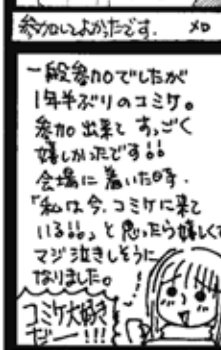 参加いよかたです. XD
一般参加でしたが
1年半ぶりのコミケ。
参加出来て すっごく
嬉しかったです!!
会場に着いた時.
「私は今、コミケに来て
いる!!」と思ったら嬉しくて
マジ泣きしそうに
なりました。
コミケ大好き
だー!!!